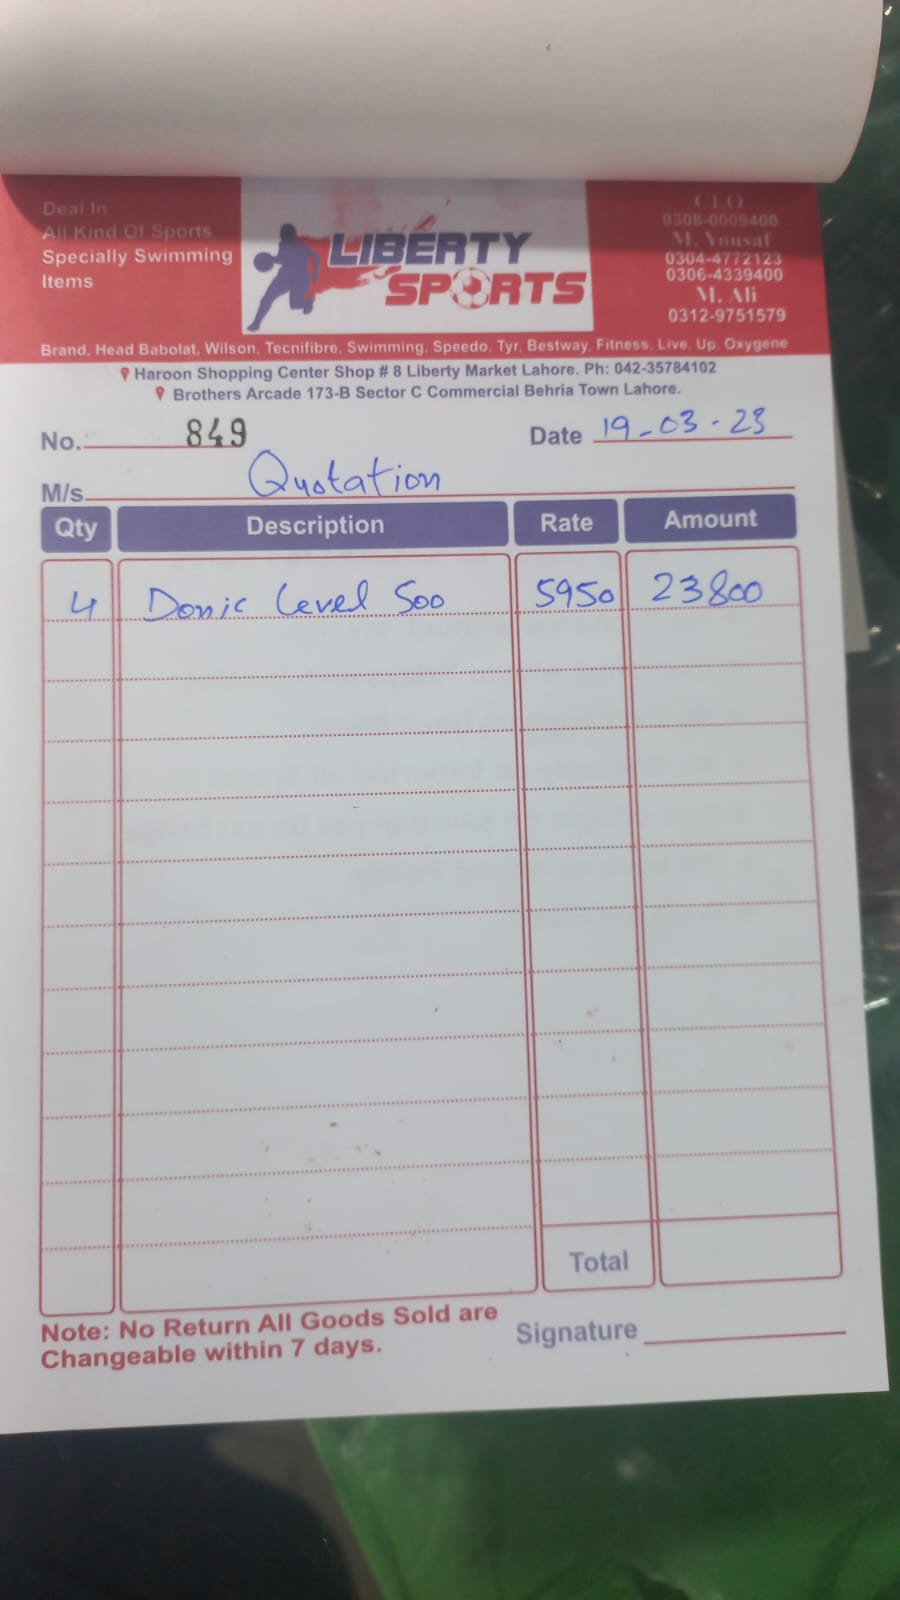 Deal In
All Kind Of Sports
Specially Swimming
Items
LIBERTY
SPORTS
CEO
0308-0009400
M. Yousaf
0304-4772123
0306-4339400
M. Ali
0312-9751579
Brand, Head Babolat, Wilson, Tecnifibre, Swimming, Speedo, Tyr, Bestway, Fitness, Live, Up, Oxygene
Haroon Shopping Center Shop # 8 Liberty Market Lahore. Ph: 042-35784102
Brothers Arcade 173-B Sector C Commercial Behria Town Lahore.
No. 849 Date 19-03-23
M/s. Quotation
Qty Description Rate Amount
4 Donic Level 500 5950 23800
Total
Note: No Return All Goods Sold are
Changeable within 7 days.
Signature